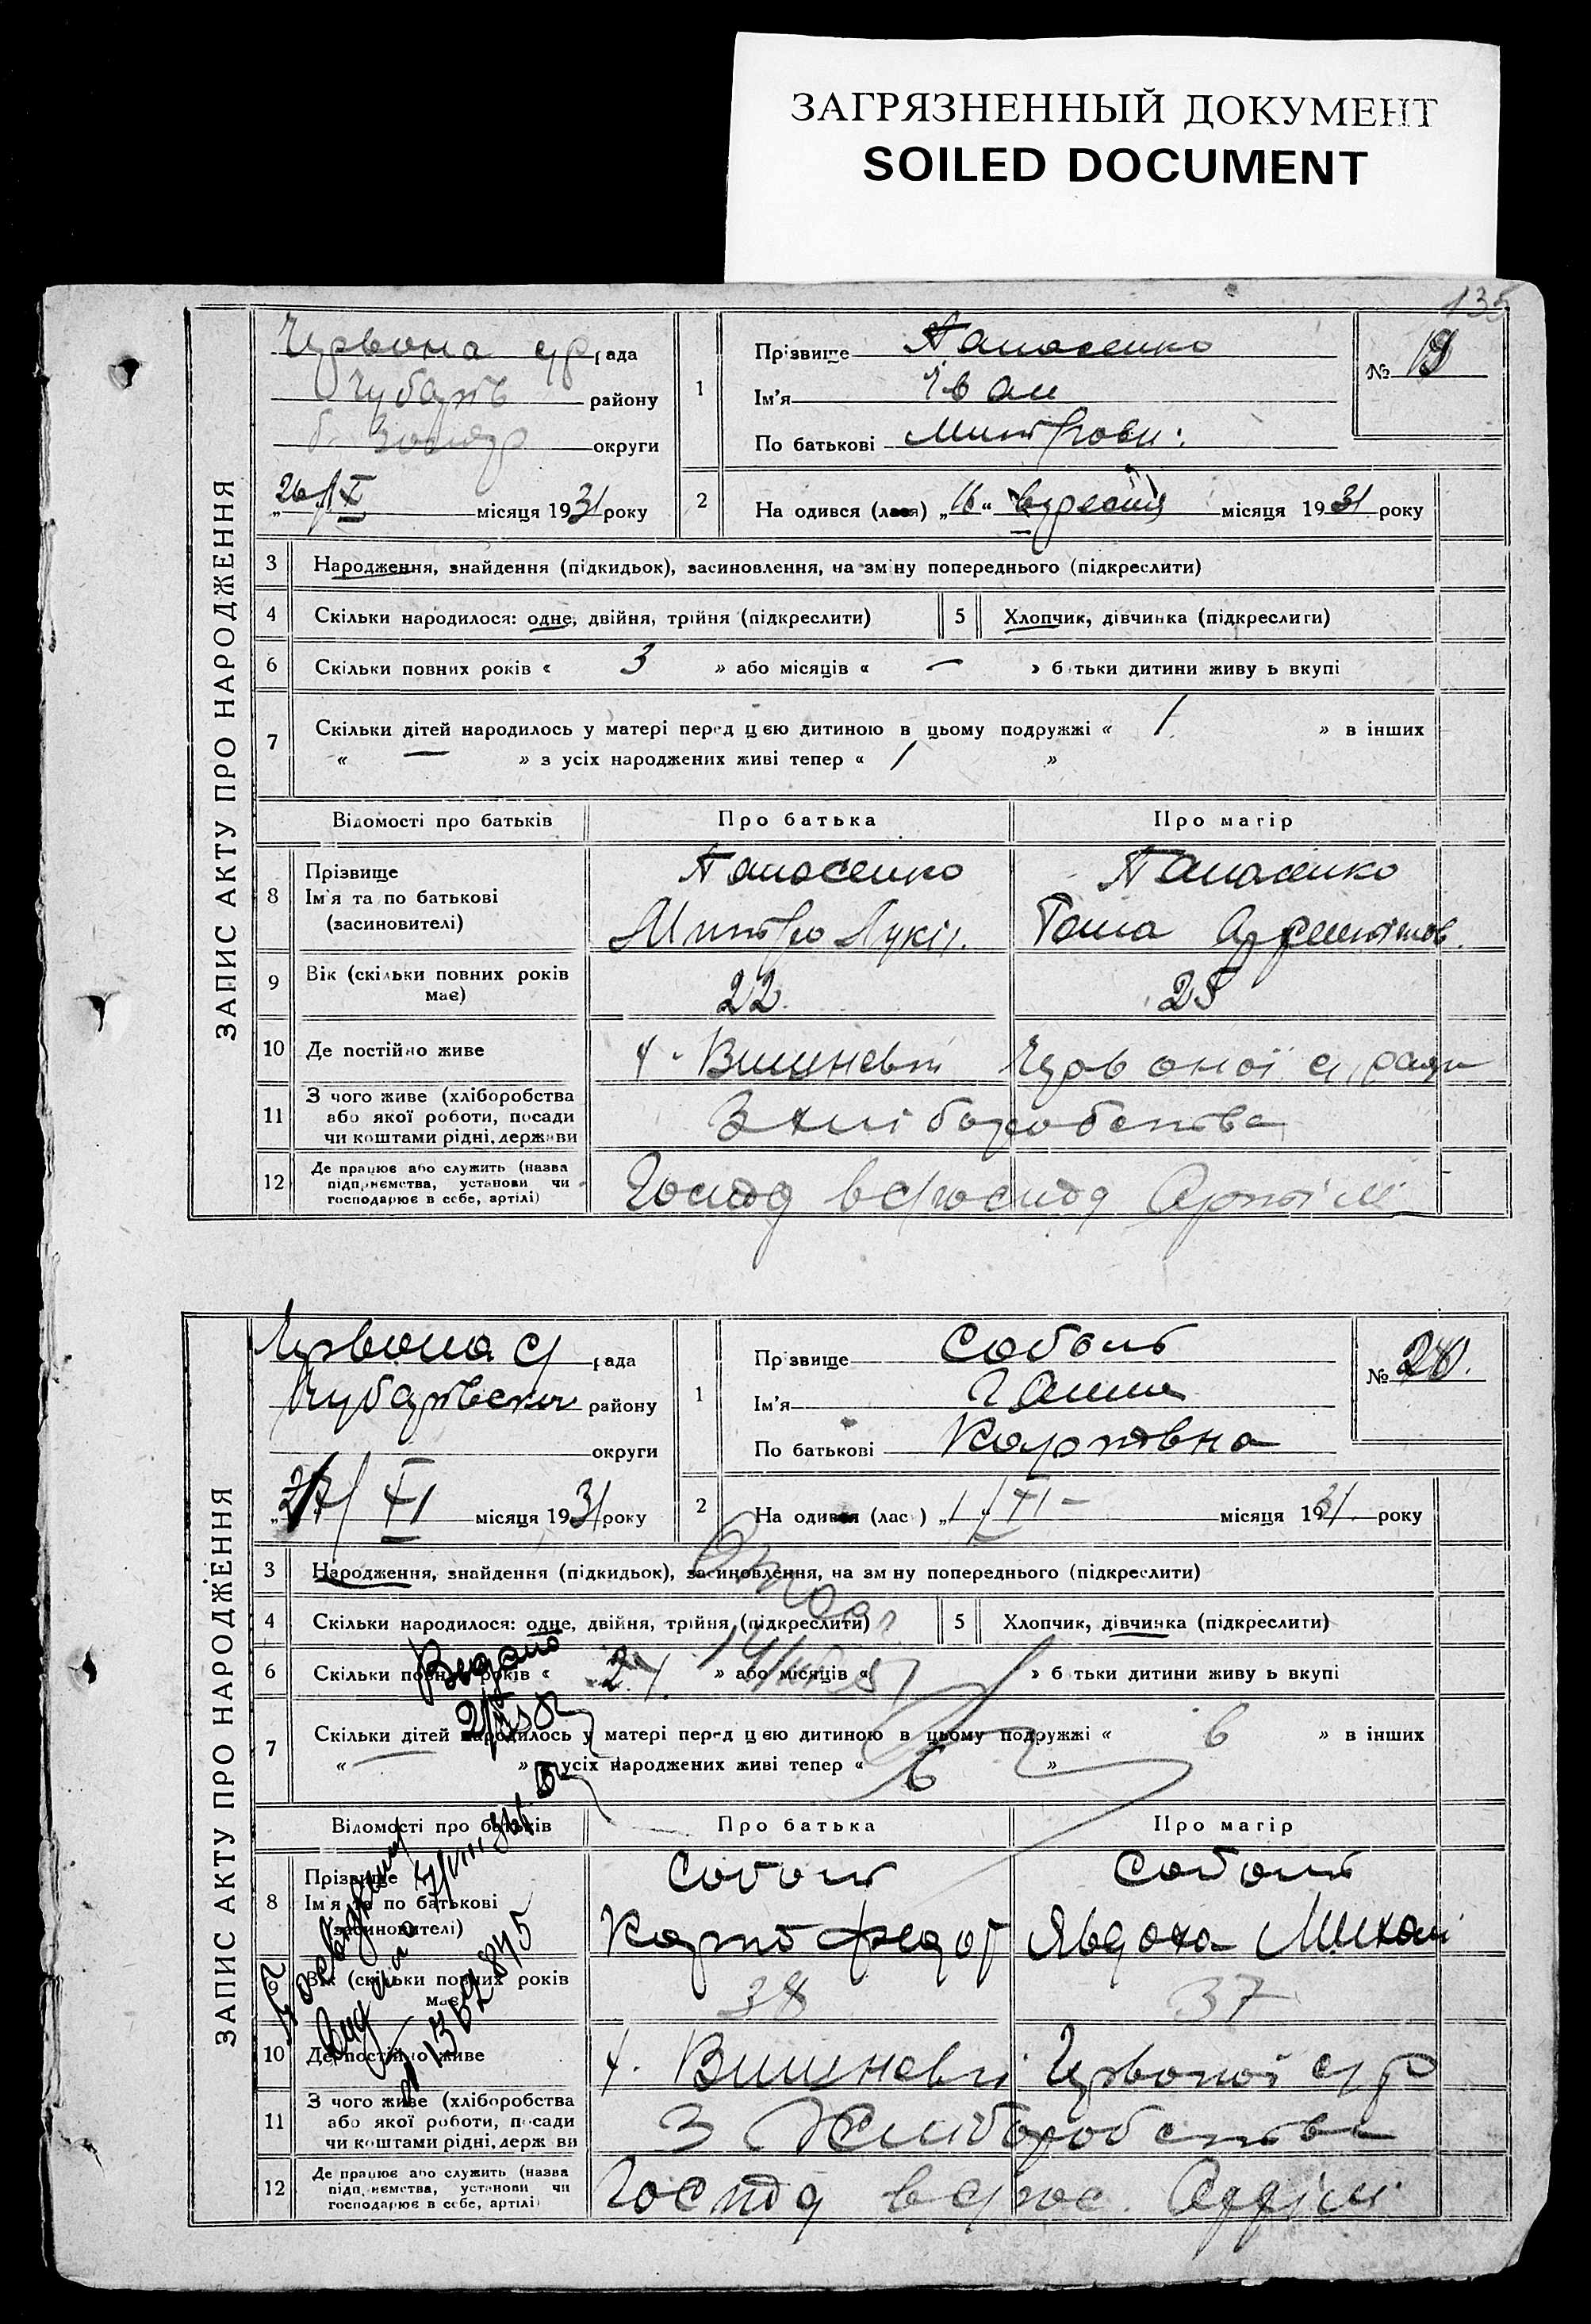 ЗАГРЯЗНЕННЫЙ ДОКУМЕНТ
SOILED DOCUMENT
135
ЗАПИС АКТУ ПРО НАРОДЖЕННЯ
Червона с/р рада
району
округи
26/X місяця 1931 року
1
Прізвище Панасенко
Ім'я Іван
По батькові Митрови.
№ 19
2
На одився (лася) „16“ місяця 1931 року
3 Народження, знайдення (підкидьок), засиновлення, на зміну попереднього (підкреслити)
4 Скільки народилося: одне, двійня, трійня (підкреслити)
5 Хлопчик, дівчинка (підкреслити)
6 Скільки повних років « 3 » або місяців « — » б тьки дитини живу ь вкупі
7 Скільки дітей народилось у матері перед цією дитиною в цьому подружжі « 1 » в інших
« — » з усіх народжених живі тепер « 1 »
Відомості про батьків Про батька Про матір
8 Прізвище
Ім'я та по батькові
(засиновителі)
Панасенко Панасенко
Митро Лукіч.
9 Вік (скільки повних років
має)
22 25
10 Де постійно живе
х. Вишневий Червоної с, ради
11 З чого живе (хліборобства
або якої роботи, посади
чи коштами рідні, держави
З хліборобства
12 Де працює або служить (назва
підприємства, установи чи
господарює в себе, артілі)
Госпód в с/госпód Артіл
ЗАПИС АКТУ ПРО НАРОДЖЕННЯ
Червона с/ рада
району
округи
27/XI місяця 1931 року
1
Прізвище Соболь
Ім'я Ганна
По батькові Карпівна
№ 20.
2
На одився (лас ) „1 /XI — місяця 1931. року
3 Народження, знайдення (підкидьок), засиновлення, на зм ну попереднього (підкреслити)
4 Скільки народилося: одне, двійня, трійня (підкреслити)
5 Хлопчик, дівчинка (підкреслити)
6 Скільки повних років « » або місяців « » б тьки дитини живу ь вкупі
7 Скільки дітей народилось у матері перед цією дитиною в цьому подружжі « 6 » в інших
« — » з усіх народжених живі тепер « 6 »
Відомості про батьків Про батька Про матір
8 Прізвище
Ім'я та по батькові
(засиновителі)
Соболь Соболь
Карпо Федор Явдоха Михай
9 Вік (скільки повних років
має)
38 37
10 Де постійно живе
х. Вишневий Червоної с/р
11 З чого живе (хліборобства
або якої роботи, посади
чи коштами рідні, держ ви
З Хліборобства
12 Де працює або служить (назва
підприємства, установи чи
господарює в себе, артілі)
Госпód в с/гос. Артіл